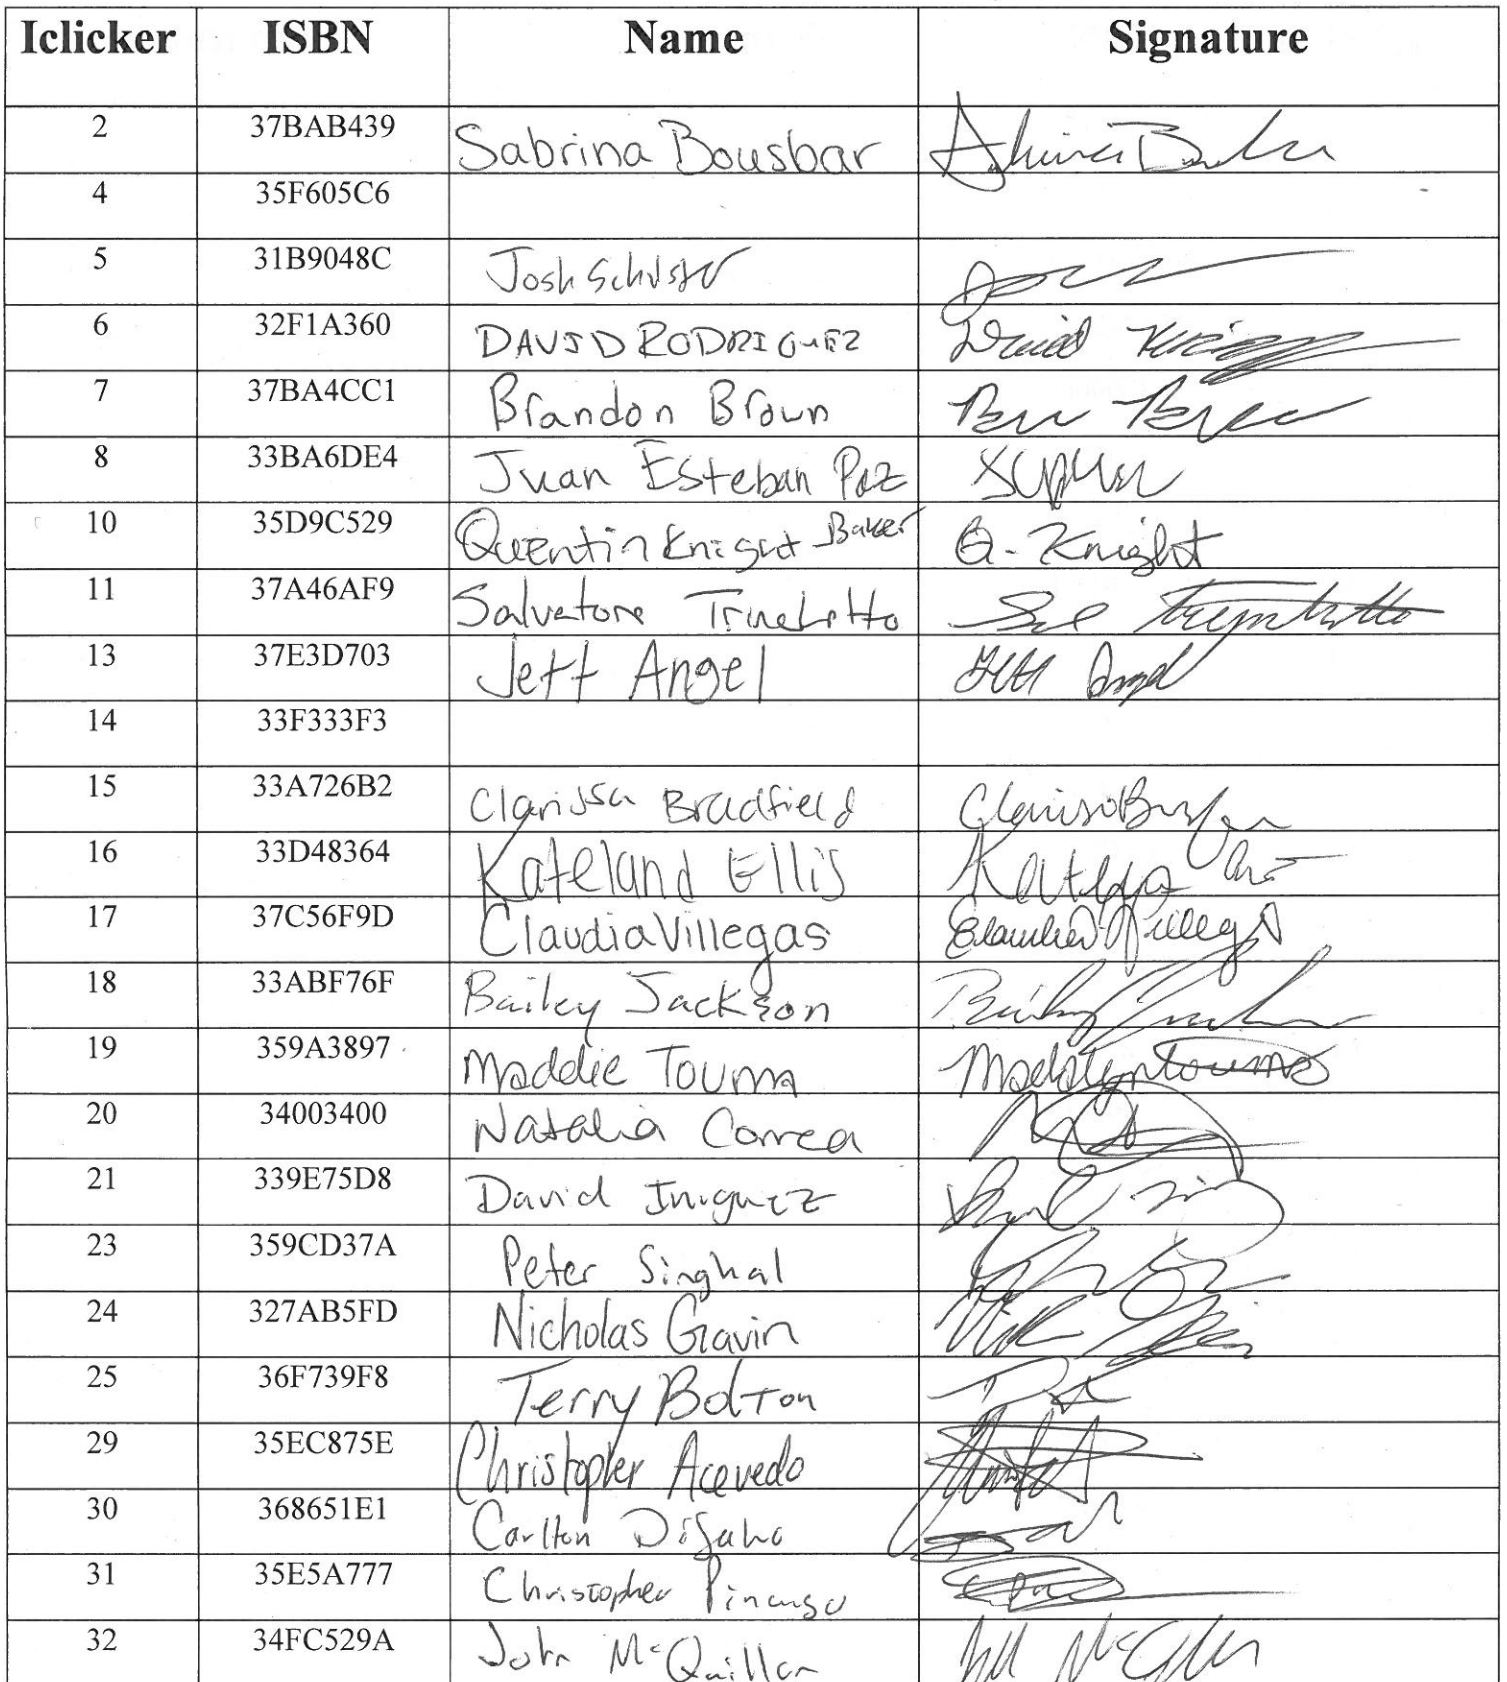 Iclicker ISBN Name Signature
2 37BAB439 Sabrina Bousbar
4 35F605C6
5 31B9048C Josh Schuster
6 32F1A360 DAVID RODRIGUEZ David
7 37BA4CC1 Brandon Brown
8 33BA6DE4 Juan Esteban Paz
10 35D9C529 Quentin Knight-Baker Q. Knight
11 37A46AF9 Salvatore Sal
13 37E3D703 Jeff Angel Jeff Angel
14 33F333F3
15 33A726B2 Clarissa Bradfield
16 33D48364 Kateland Ellis
17 37C56F9D Claudia Villegas Claudia Villegas
18 33ABF76F Bailey Jackson Bailey
19 359A3897 Maddie Touma Madelyn Touma
20 34003400 Natalia Correa
21 339E75D8 David Iniguez
23 359CD37A Peter Singhal
24 327AB5FD Nicholas Gavin
25 36F739F8 Terry Bolton
29 35EC875E Christopher Acevedo
30 368651E1 Carlton
31 35E5A777 Christopher
32 34FC529A John McQuillan